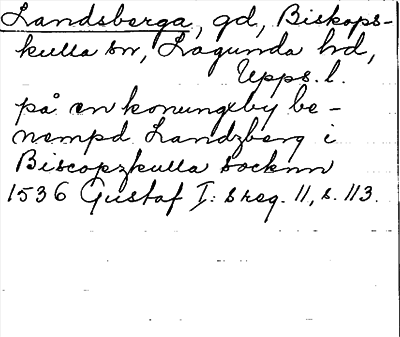 Landsberga, gd, Biskops-
kulla sn, Lagunda hd,
Upps. l.
på en konungxby be-
nempd Landzberg i
Biscopzkulla socknn
1536 Gustaf I: s reg. 11, s. 113.